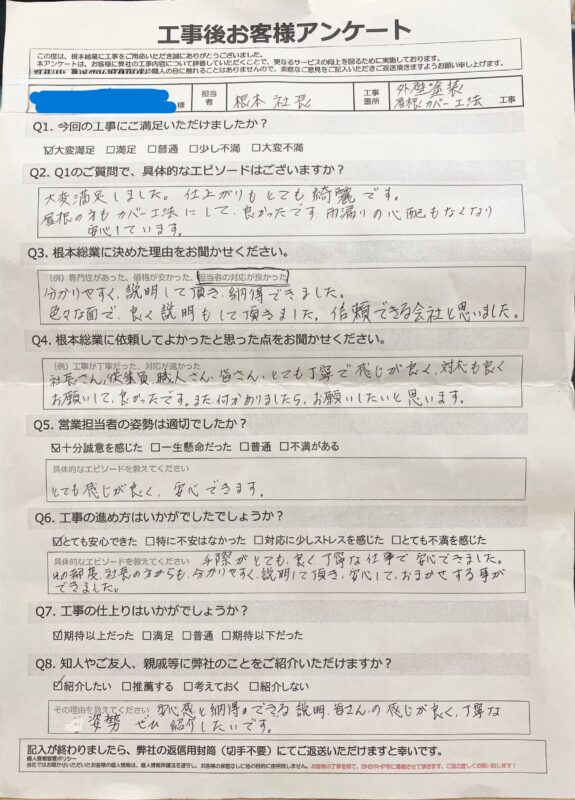 工事後お客様アンケート
この度は、根本総業に工事をご用命いただき誠にありがとうございました。
本アンケートは、お客様に弊社の工事内容について評価していただくことで、更なるサービスの向上を図るために実施しております。
個人の目に触れることはありませんので、率直なご意見をご記入いただきご返送頂きますようお願い申し上げます。
様
担当者
根本社長
工事箇所
外壁塗装
屋根カバー工法
工事
Q1. 今回の工事にご満足いただけましたか？
☑大変満足 □満足 □普通 □少し不満 □大変不満
Q2. Q1のご質問で、具体的なエピソードはございますか？
大変満足しました。仕上がりもとても綺麗です。
屋根の方もカバー工法にして、良かったです。雨漏りの心配もなくなり
安心しています。
Q3. 根本総業に決めた理由をお聞かせください。
（例）専門性があった、価格が安かった、担当者の対応が良かった
分かりやすく、説明して頂き、納得できました。
色々な面で、良く説明もして頂きました。信頼できる会社と思いました。
Q4. 根本総業に依頼してよかったと思った点をお聞かせください。
（例）工事が丁寧だった、対応が速かった
社長さん、従業員、職人さん、皆さん、とても丁寧で感じが良く、対応も良く
お願いして、良かったです。また何かありましたら、お願いしたいと思います。
Q5. 営業担当者の姿勢は適切でしたか？
☑十分誠意を感じた □一生懸命だった □普通 □不満がある
具体的なエピソードを教えてください
とても感じが良く、安心できます。
Q6. 工事の進め方はいかがでしたでしょうか？
☑とても安心できた □特に不安はなかった □対応に少しストレスを感じた □とても不満を感じた
具体的なエピソードを教えてください 手際がとても、良く、丁寧な仕事で安心できました。
部長、社長の方からも、分かりやすく、説明して頂き、安心して、おまかせする事が
できました。
Q7. 工事の仕上りはいかがでしょうか？
☑期待以上だった □満足 □普通 □期待以下だった
Q8. 知人やご友人、親戚等に弊社のことをご紹介いただけますか？
☑紹介したい □推薦する □考えておく □紹介しない
その理由を教えてください 安心感と納得のできる説明、皆さんの感じが良く、丁寧な
姿勢 ぜひ紹介したいです。
記入が終わりましたら、弊社の返信用封筒（切手不要）にてご返送いただけますと幸いです。
個人情報管理ポリシー
当社ではお聞かせいただいたお客様の個人情報は、個人情報保護法を遵守し、お客様の承諾なしに他の目的に使用致しません。